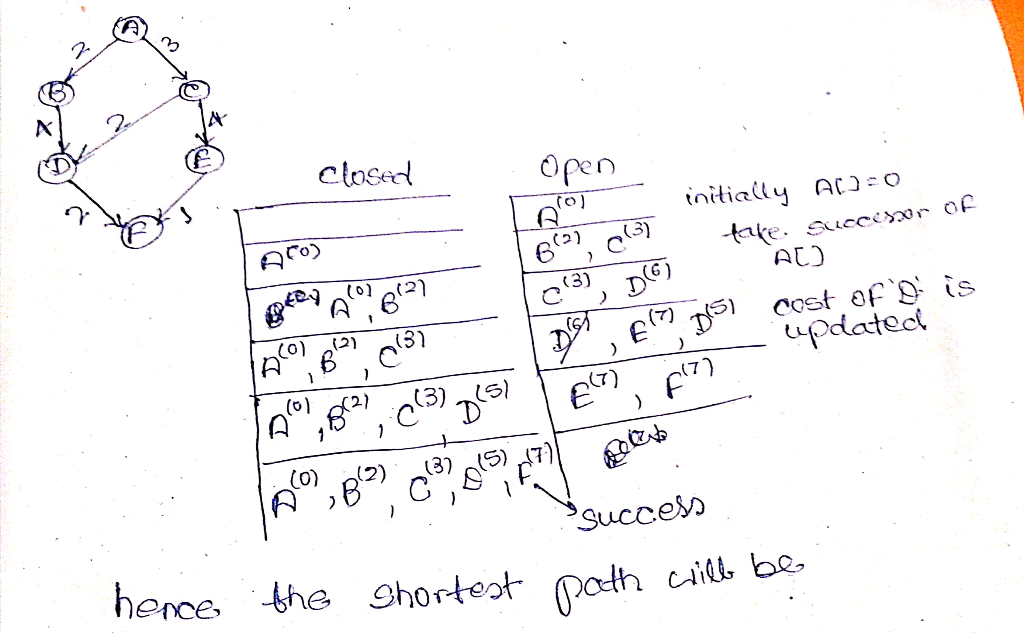 A
2 3
B C
4 2 4
D E
2 1
F
Closed Open
A(0) initially A[]=0
A(0) B(2), C(3) take successor of
A[]
A(0), B(2) C(3), D(6)
A(0), B(2), C(3) D(6), E(7), D(5) cost of 'D' is
updated
A(0), B(2), C(3), D(5) E(7), F(7)
A(0), B(2), C(3), D(5), F(7)
success
hence the shortest path will be